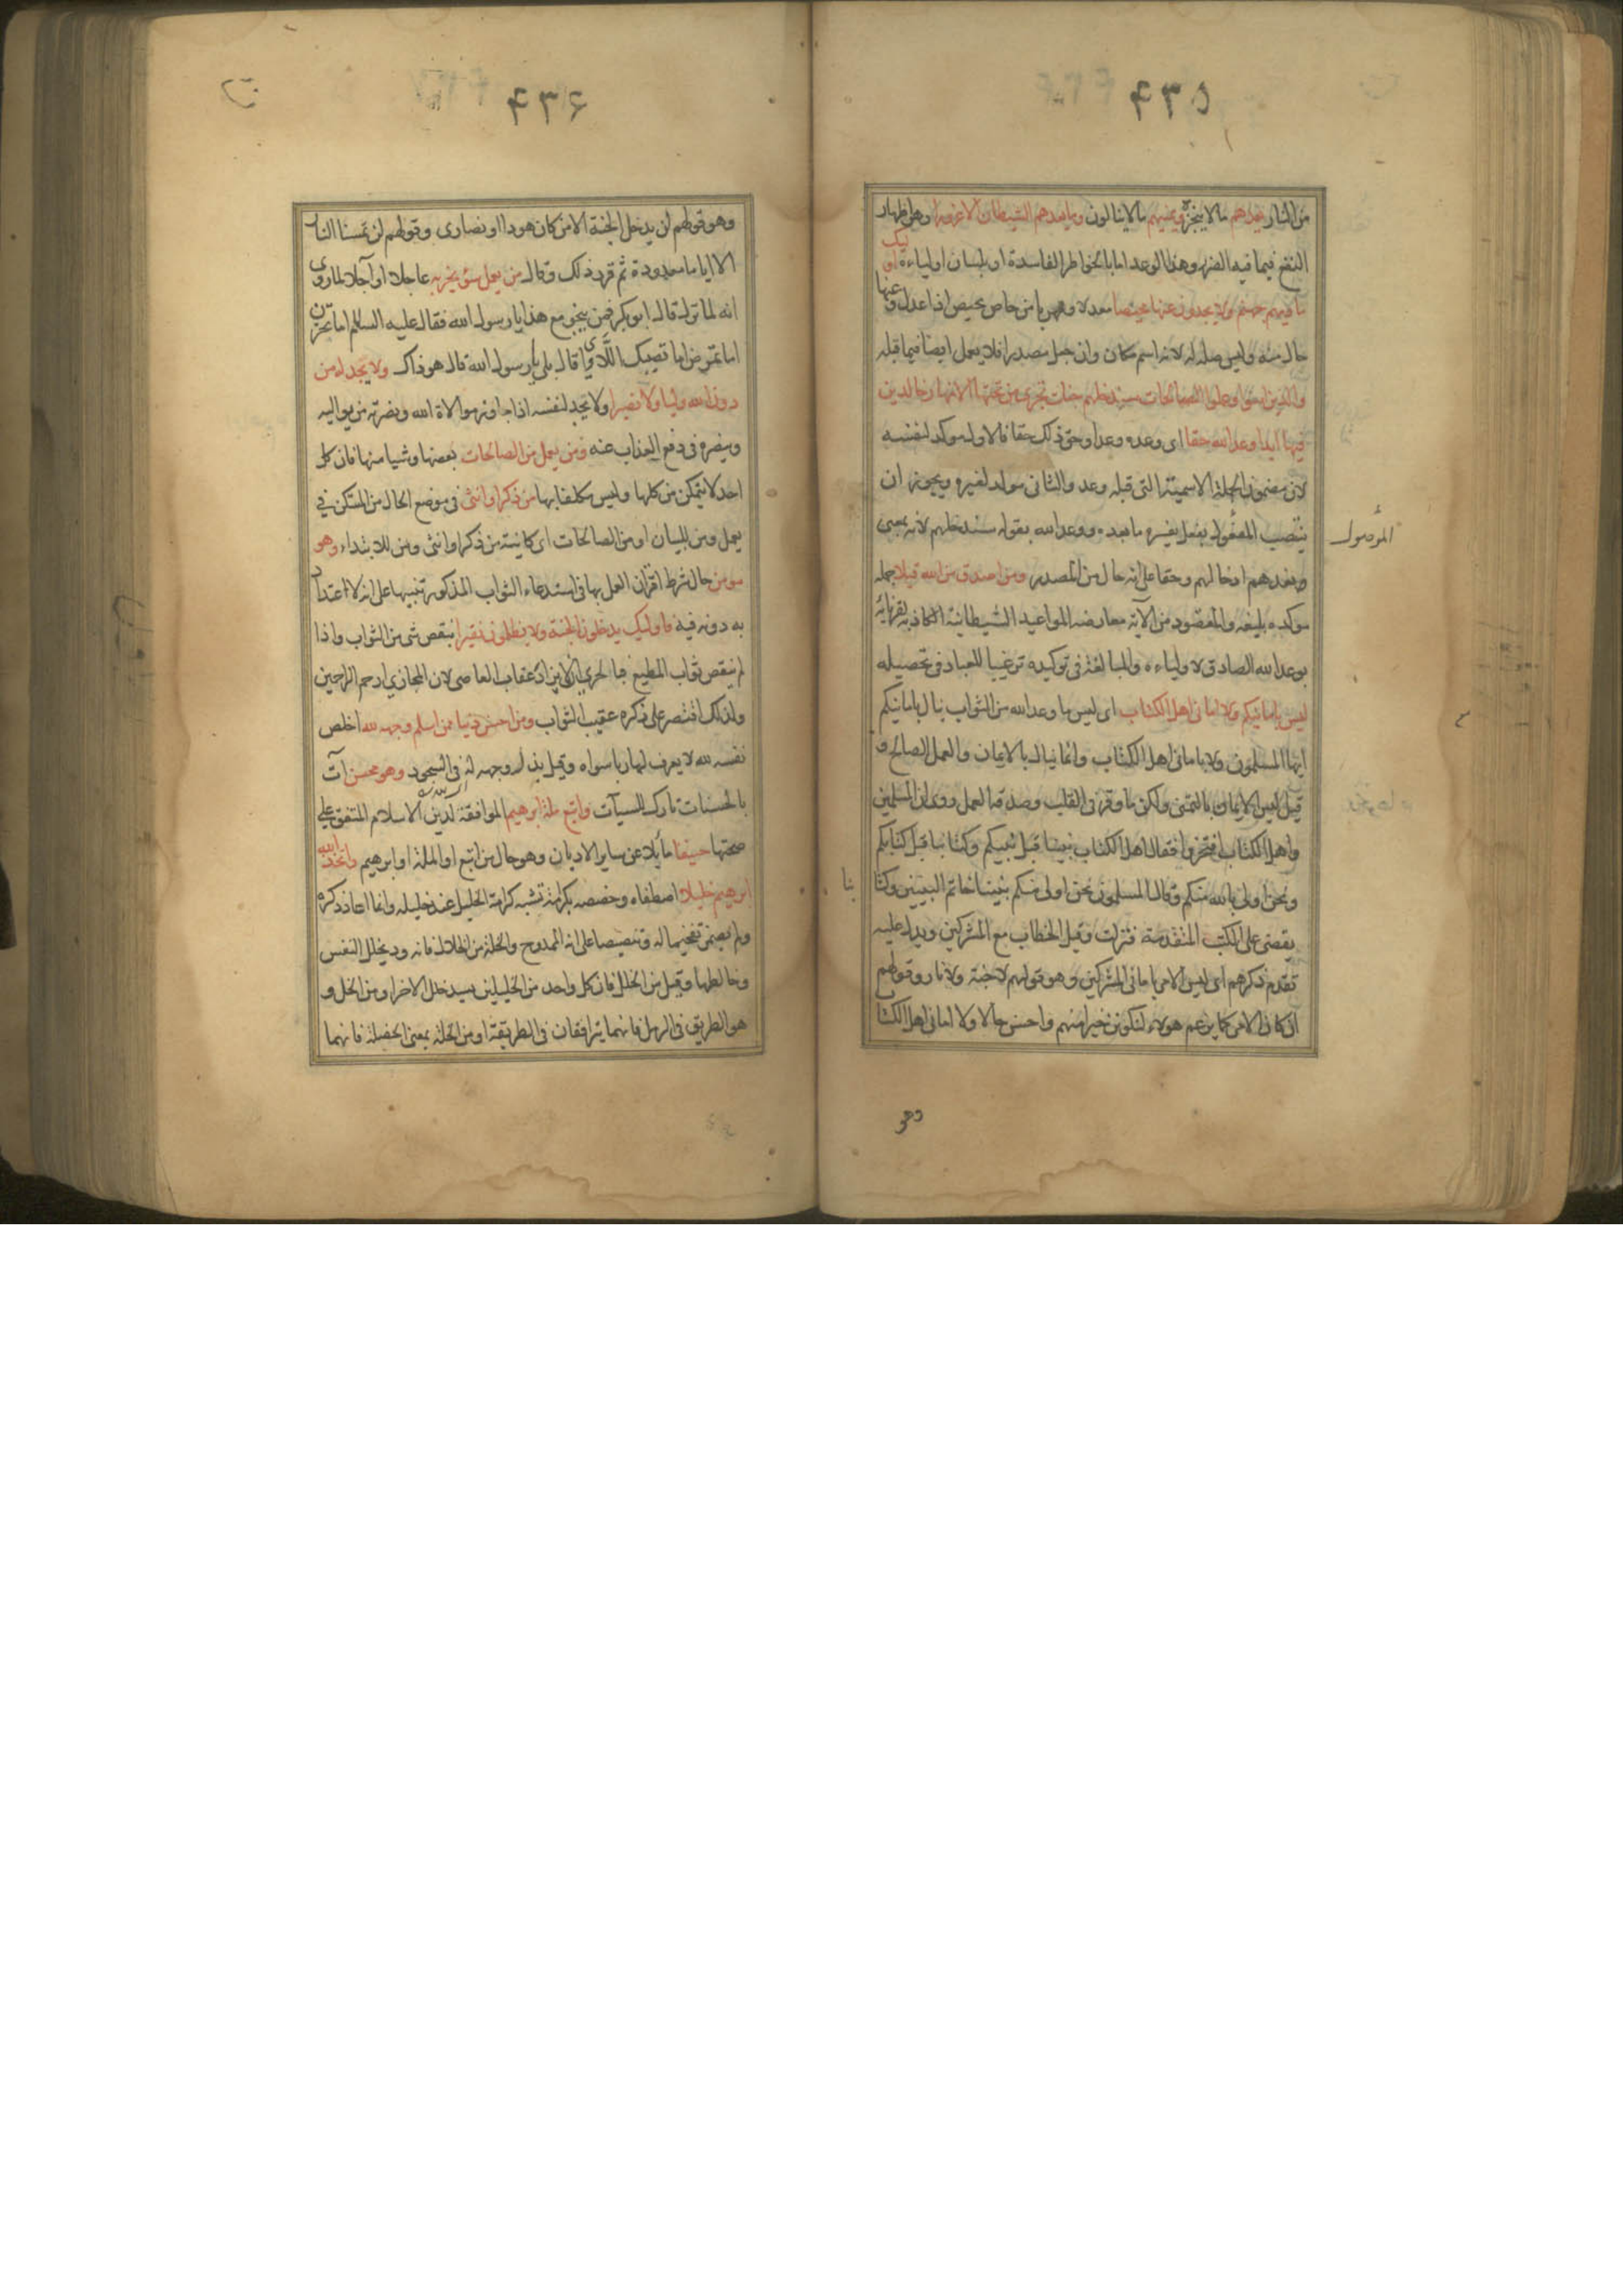 ۴۳۵
من النار يعدهم مالا ينجزه ويمنيهم مالا ينالون وما يعدهم الشيطان الا غرورا وهو اظهار
النفع فيما فيه الضر وهذا الوعد اما بالخواطر الفاسدة او بلسان اولياءه اوليك
ماويهم جهنم ولا يجدون عنها محيصا معدلا ومهربا من حاص يحيص اذا عدل وعنها
حال منه وليس صلة له لانه اسم مكان وان جعل مصدرا فلا يعمل ايضا فيما قبله
والذين امنوا وعملوا الصالحات سندخلهم جنات تجرى من تحتها الانهار خالدين
فيها ابدا وعد الله حقا اى وعده وعدا وحق ذلك حقا فالاول موكد لنفسه
لان مضمون الجملة الاسمية التى قبله وعد والثانى موكد لغيره ويجوز ان
ينتصب المفعول بفعل يفسره ما بعده ووعد الله بقوله سندخلهم لانه بمعنى
الموصول
وعدهم ادخالهم وحقا على انه حال من المصدر ومن اصدق من الله قيلا جملة
موكده بليغه والمقصود من الآية معارضه المواعيد الشيطانية الكاذبة لقرنائه
بوعد الله الصادق لاولياءه والمبالغة فى توكيده ترغيبا للعباد فى تحصيله
ليس بامانيكم ولا امانى اهل الكتاب اى ليس ما وعد الله من الثواب ينال بامانيكم
ايها المسلمون ولا بامانى اهل الكتاب وانما ينال بالايمان والعمل الصالح و
قيل ليس الايمان بالتمنى ولكن ما وقر فى القلب وصدقه العمل روى ان المسلمين
واهل الكتاب افتخروا فقال اهل الكتاب نبينا قبل نبيكم وكتابنا قبل كتابكم
ونحن اولى بالله منكم وقال المسلمون نحن اولى منكم نبينا خاتم النبيين وكتا
بنا
يقضى على الكتب المتقدمة فنزلت وقيل الخطاب مع المشركين ويدل عليه
تقدم ذكرهم اى ليس الامر بامانى المشركين وهو قولهم لا جنة ولا نار وقولهم
ان كان الامر كما يزعم هولاء لنكونن خيرا منهم واحسن حالا ولا امانى اهل الكتاب
وهو
۴۳۶
وهو قولهم لن يدخل الجنة الا من كان هودا او نصارى وقولهم لن تمسنا النار
الا اياما معدودة ثم قرر ذلك وقال من يعمل سوء يجز به عاجلا او آجلا لما روى
انه لما نزل قال ابو بكر فمن ينجو مع هذا يا رسول الله فقال عليه السلام اما تحزن
اما تمرض اما تصيبك اللأواى قال بلى يا رسول الله قال هو ذاك ولا يجد له من
دون الله وليا ولا نصيرا ولا يجد لنفسه اذا جاوز موالاة الله ونصرته من يواليه
وينصره فى دفع العذاب عنه ومن يعمل من الصالحات بعضها وشيا منها فان كل
احد لا يتمكن من كلها وليس مكلفا بها من ذكر او انثى فى موضع الحال من المستكن فى
يعمل ومن للبيان او من الصالحات اى كاينة من ذكر او انثى ومن للابتداء وهو
مومن حال شرط اقتران العمل بها فى استدعاء الثواب المذكور تنبيها على انه لا اعتداد
به دونه فيه فاوليك يدخلون الجنة ولا يظلمون نقيرا بنقص شى من الثواب واذا
لم ينقص ثواب المطيع فبالحرى ان لا يزاد عقاب العاصى لان المجازى ارحم الراحمين
ولذلك اقتصر على ذكره عقيب الثواب ومن احسن دينا ممن اسلم وجهه لله اخلص
نفسه لله لا يعرف لها ربا سواه وقيل بذل وجهه له فى السجود وهو محسن آت
بالحسنات تارك للسيآت واتبع ملة ابرهيم الموافقة لدين الاسلام المتفق على
صحتها حنيفا مايلا عن ساير الاديان وهو حال من اتبع او الملة او ابرهيم واتخذ الله
ابرهيم خليلا اصطفاه وخصصه بكرامة تشبه كرامة الخليل عند خليله وانما اعاد ذكره
ولم يضمر تفخيما له وتنصيصا على انه الممدوح والخلة من الخلال فانه ود يخلل النفس
وخالطها وقيل من الخلل فان كل واحد من الخليلين يسد خلل الاخر او من الخل و
هو الطريق فى الرمل فانهما يترافقان فى الطريقة او من الخلة بمعنى الخصلة فانهما